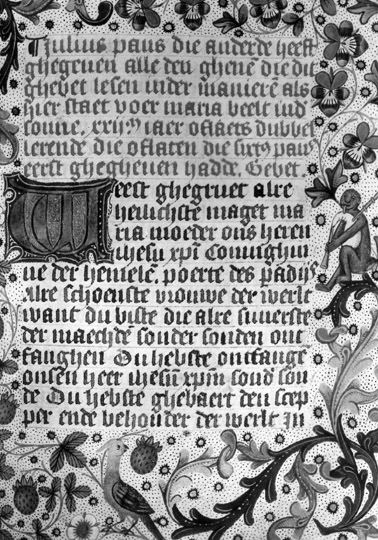 Julius paus die anderde heeft
ghegeuen alle den ghene die dit
ghebet lesen inder manieren als
hier staet voer maria beelt in d'
sonne. xxiij iaer oflaets dubbel
lerende die oflaten die sixt paus
eerst ghegheuen hadde. Gebet.
Weest ghegruet alre
heilichste maget ma
ria moeder ons heren
ihesu xpi Coninghin
ne der hemele. poerte des padijs
Alre schoenste vrouwe der werlt
want du biste die alre suuerste
der maechdē sonder sonden ont
fanghen Du hebste ontfange
onsen heer ihesū xpm sond' son
de Du hebste ghebaert den scep
per ende behouder der werlt In